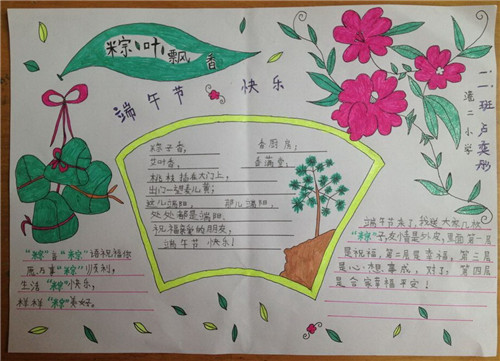 粽叶飘香
端午节快乐
二一班 卢奕彤
溏二小学
粽子香, 香厨房;
艾叶香, 香满堂;
桃枝插在大门上,
出门一望麦儿黄;
这儿端阳, 那儿端阳,
处处都是端阳.
祝福亲爱的朋友,
端午节快乐!
"粽"多"粽"诗祝福你
愿为事"粽"顺利,
生活"粽"快乐,
样样"粽"美好。
端午节来了,我送大家几枚
"粽"子,友情是外皮,里面第一层
是祝福,第二层是幸福,第三层
是心想事成,对了,第四层
是合家幸福平安!